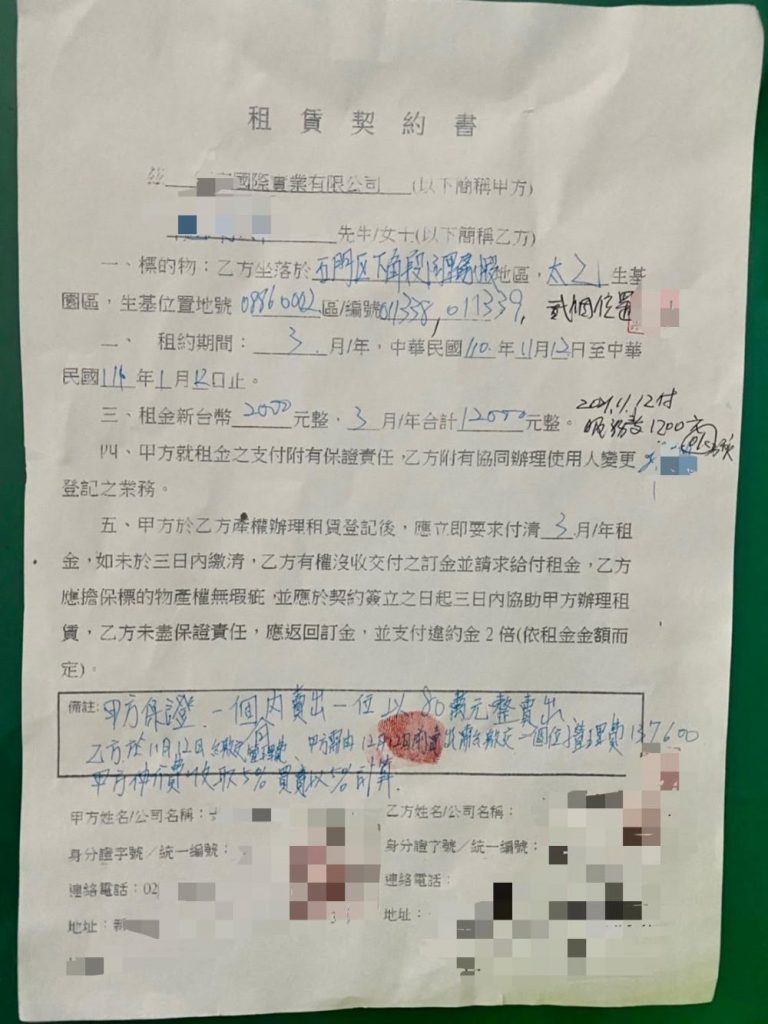 租賃契約書
國際實業有限公司 (以下簡稱甲方)
先生/女士(以下簡稱乙方)
一、標的物:乙方坐落於石門区下角段 地區,太乙生基
園區,生基位置地號 09860002 區/編號011338,011339,貳個位置
二、 租約期間: 3 月/年,中華民國110年11月12日至中華
民國 年1月12日止。
三、租金新台幣 2000 元整,3月/年合計12000元整。
2021.11.12付
服務費1200元
四、甲方就租金之支付附有保證責任,乙方附有協同辦理使用人變更
登記之業務。
五、甲方於乙方產權辦理租賃登記後,應立即要求付清 3 月/年租
金,如未於三日內繳清,乙方有權沒收交付之訂金並請求給付租金,乙方
應擔保標的物產權無瑕疵,並應於契約簽立之日起三日內協助甲方辦理租
賃,乙方未盡保證責任,應返回訂金,並支付違約金2倍(依租金金額而
定)。
備註:甲方保證一個月內賣出一位以80萬元整賣出
乙方於11月12日繳交管理費 甲方 12月12日 繳交一個位管理費137600
甲方仲介費收取5% 買賣以5%計算.
甲方姓名/公司名稱:
身分證字號/統一編號:
連絡電話:02
地址:新
乙方姓名/公司名稱:
身分證字號/統一編號:
連絡電話:
地址: